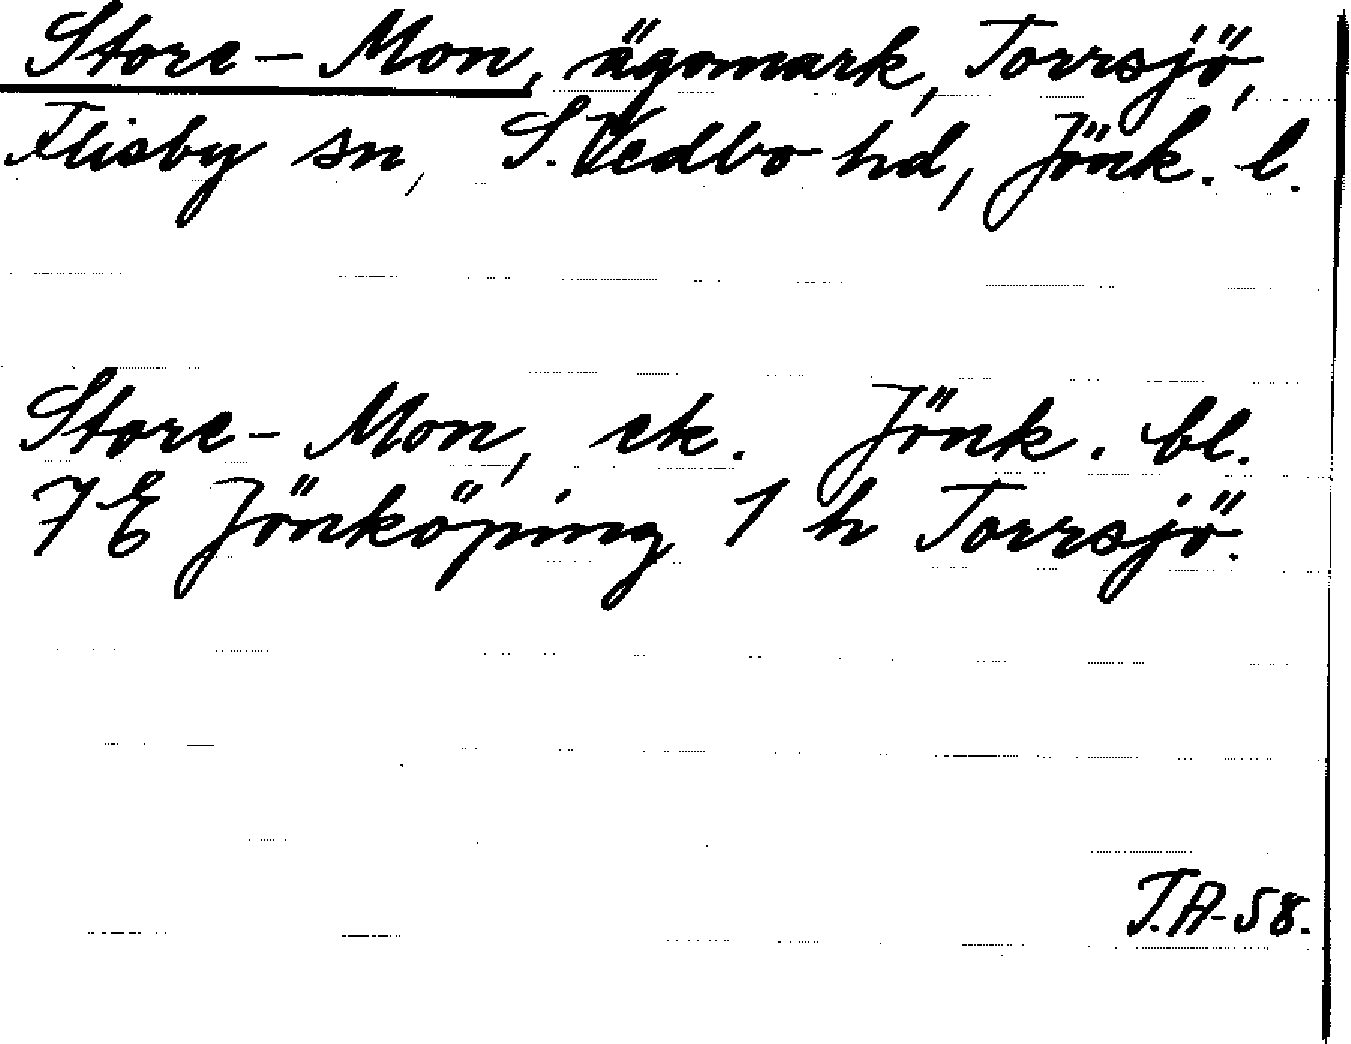 Store-Mon, ägomark, Torrsjö,
Flisby sn, S. Vedbo hd, Jönk. l.
Store-Mon, ek. Jönk. bl.
7 E Jönköping 1 h Torrsjö.
T.A-58.